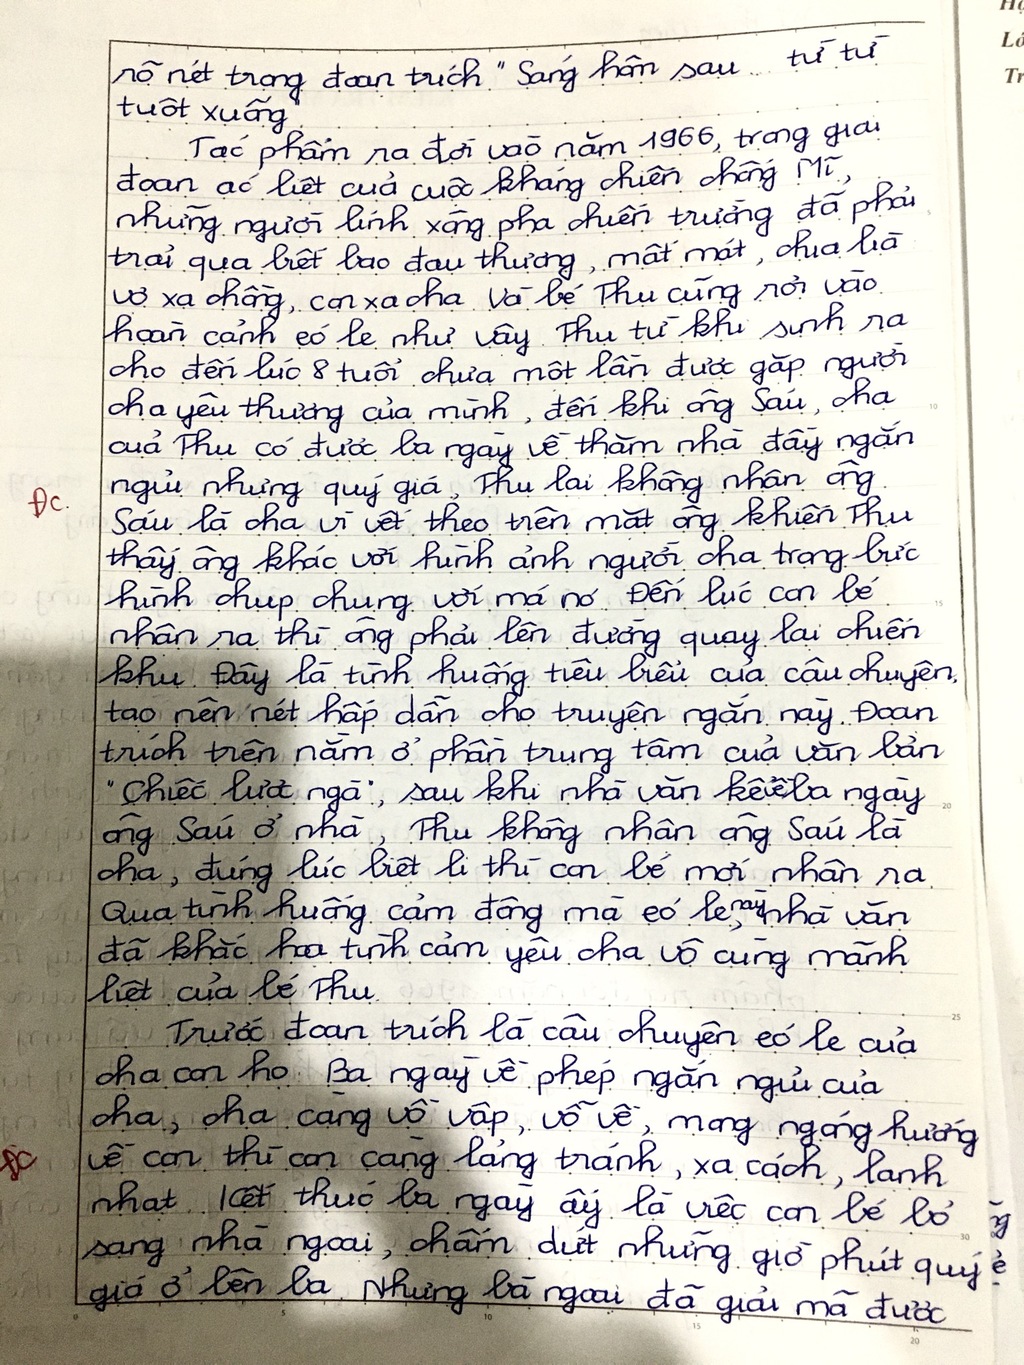 Họ
Lớ
Tr
rõ nét trong đoạn trích "Sáng hôm sau... từ từ
tuột xuống"
Tác phẩm ra đời vào năm 1966, trong giai
đoạn ác liệt của cuộc kháng chiến chống Mĩ,
những người lính xông pha chiến trường đã phải
trải qua biết bao đau thương, mất mát, chia lìa
vợ xa chồng, con xa cha. Và bé Thu cũng rơi vào
hoàn cảnh éo le như vậy. Thu từ khi sinh ra
cho đến lúc 8 tuổi chưa một lần được gặp người
cha yêu thương của mình, đến khi ông Sáu, cha
của Thu có được ba ngày về thăm nhà đầy ngắn
ngủi nhưng quý giá, Thu lại không nhận ông
Đc.
Sáu là cha vì vết thẹo trên mặt ông khiến Thu
thấy ông khác với hình ảnh người cha trong bức
hình chụp chung với má nó. Đến lúc con bé
nhận ra thì ông phải lên đường quay lại chiến
khu. Đây là tình huống tiêu biểu của câu chuyện,
tạo nên nét hấp dẫn cho truyện ngắn này. Đoạn
trích trên nằm ở phần trung tâm của văn bản
"Chiếc lược ngà", sau khi nhà văn kể về ba ngày
ông Sáu ở nhà, Thu không nhận ông Sáu là
cha, đúng lúc biệt li thì con bé mới nhận ra.
Qua tình huống cảm động mà éo le này, nhà văn
đã khắc họa tình cảm yêu cha vô cùng mãnh
liệt của bé Thu.
Trước đoạn trích là câu chuyện éo le của
cha con họ. Ba ngày về phép ngắn ngủi của
cha, cha càng vồ vập, vỗ về, mong ngóng hướng
Đc
về con thì con càng lảng tránh, xa cách, lạnh
nhạt. Kết thúc ba ngày ấy là việc con bé bỏ
sang nhà ngoại, chấm dứt những giờ phút quý
giá ở bên ba. Nhưng bà ngoại đã giải mã được